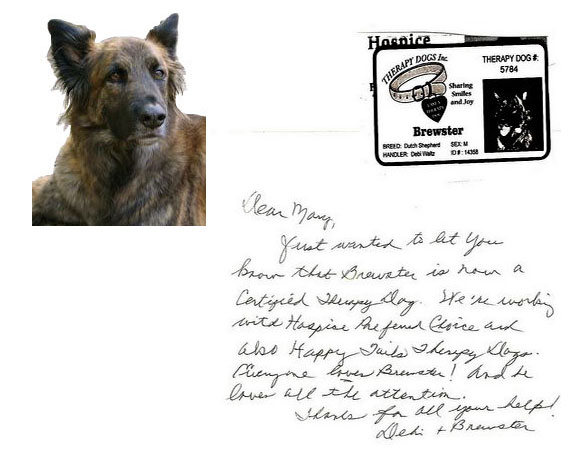 Hospice
THERAPY DOGS Inc.
THERAPY DOG #:
5784
Sharing
Smiles
and Joy
Brewster
BREED: Dutch Shepherd SEX: M
HANDLER: Debi Waltz ID #: 14358
Dear Mary,
Just wanted to let you
know that Brewster is now a
Certified Therapy Dog. We're working
with Hospice Preferred Choice and
also Happy Tails Therapy Dogs.
Everyone loves Brewster! And he
loves all the attention.
Thanks for all your help!
Debi + Brewster